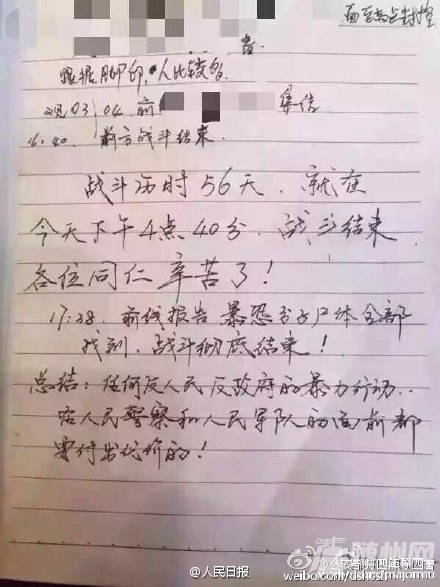 面至高点封控
告.
根据脚印 人比较多.
03/04 前 集结
16:40. 前方战斗结束.
战斗历时56天.就在
今天下午4点40分.战斗结束
各位同仁辛苦了!
17:38.前线报告暴恐分子尸体全部
找到.战斗彻底结束!
总结:任何反人民反政府的暴力行动..
在人民警察和人民军队的面前都
要付出代价的!
随州网
@人民日报
weibo.com/